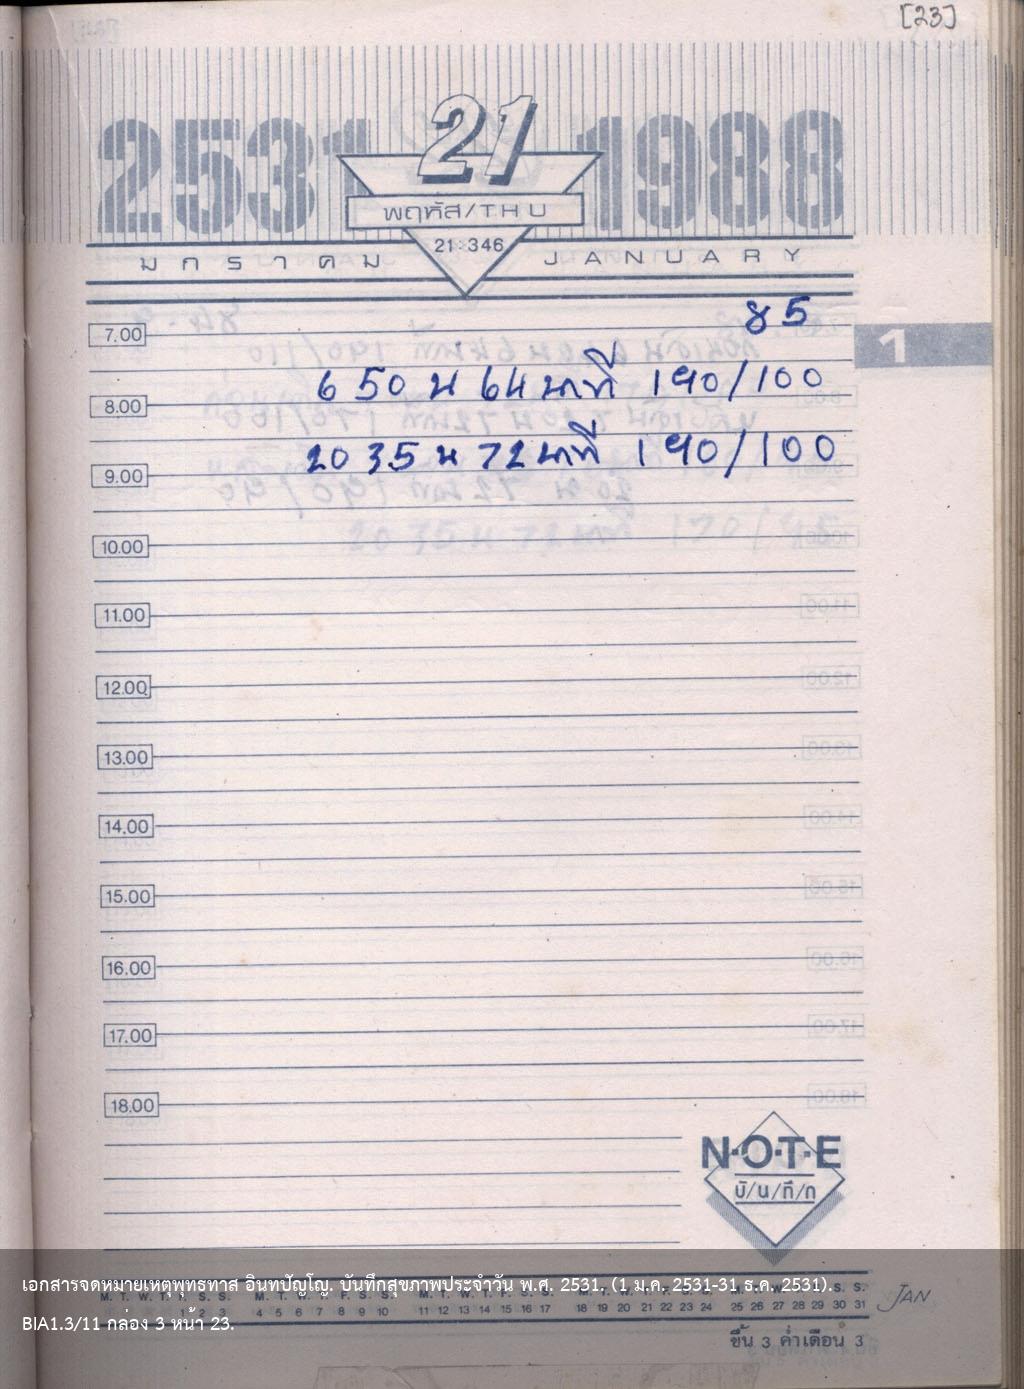 [23]
2531 21 1988
พฤหัส/THU
21-346
มกราคม JANUARY
85
7.00
1
6 50 น 64 นาที 190/100
8.00
20 35 น 72 นาที 190/100
9.00
10.00
11.00
12.00
13.00
14.00
15.00
16.00
17.00
18.00
N·O·T·E
บั/น/ทึ/ก
เอกสารจดหมายเหตุพุทธทาส อินทปัญโญ. บันทึกสุขภาพประจำวัน พ.ศ. 2531. (1 ม.ค. 2531-31 ธ.ค. 2531).
M. T. W. T. F. S. S. M. T. W. T. F. S. S. M. T. W. T. F. S. S. M. T. W. T. F. S. S. M. T. W. T. F. S. S.
1 2 3 4 5 6 7 8 9 10 11 12 13 14 15 16 17 18 19 20 21 22 23 24 25 26 27 28 29 30 31
JAN
BIA1.3/11 กล่อง 3 หน้า 23.
ขึ้น 3 ค่ำเดือน 3